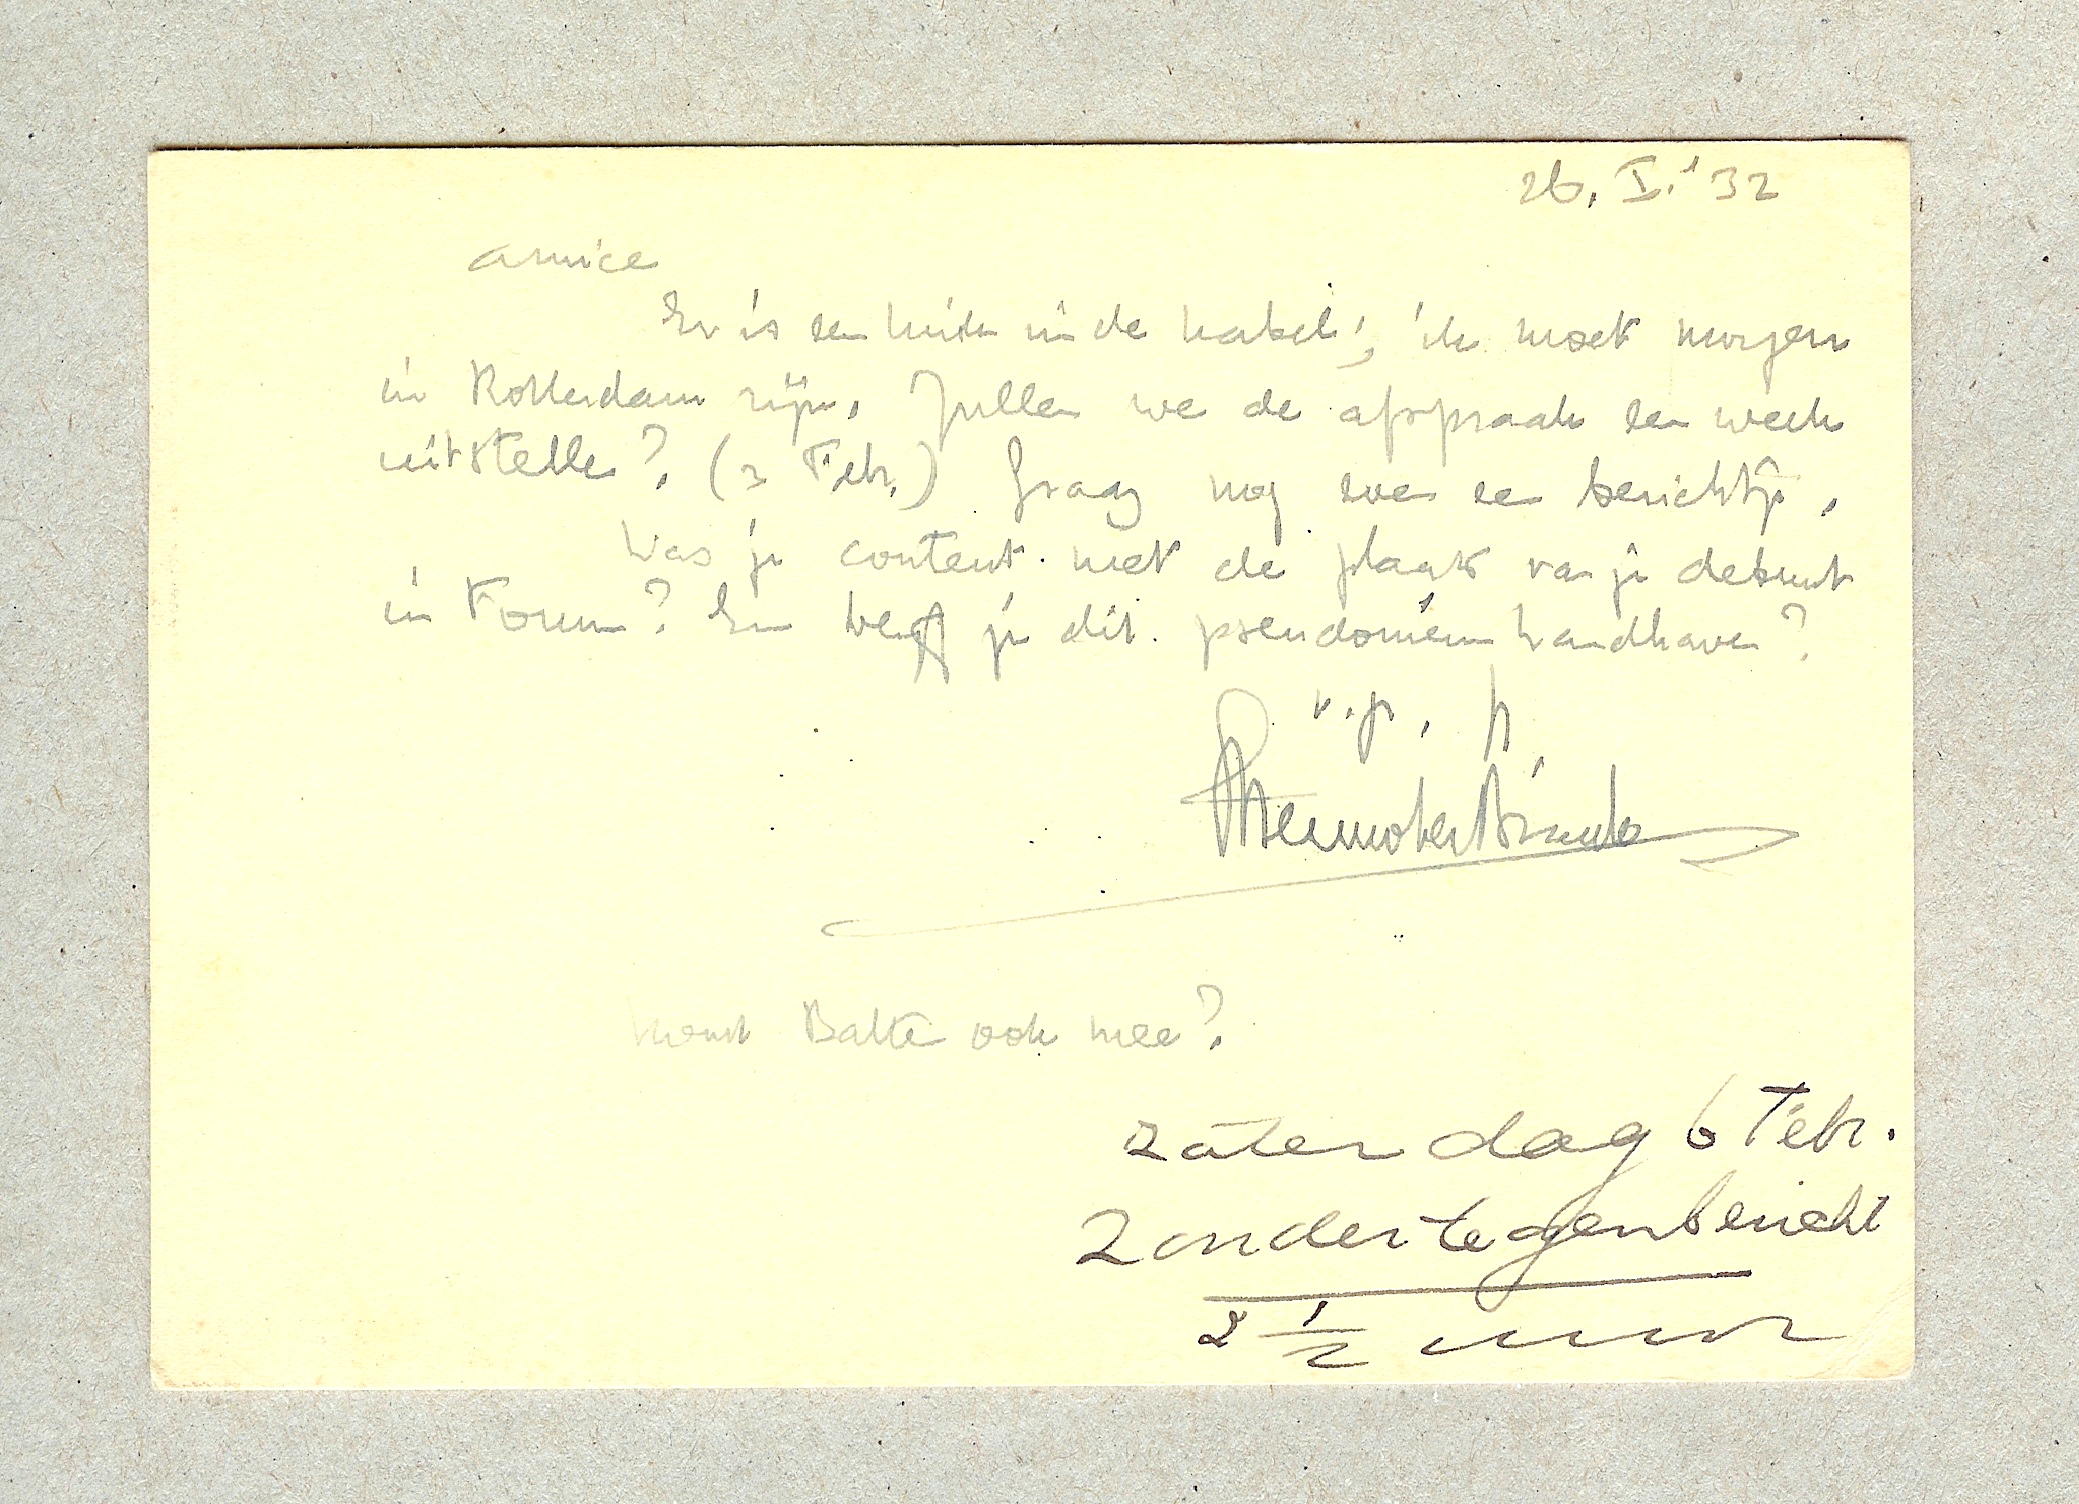 26.I.'32
amice
Er is een kink in de kabel; ik moet morgen
in Rotterdam zijn. Zullen we de afspraak een week
uitstellen? (3 Febr.) Graag nog even een berichtje.
Was je content met de plaats van je debuut
in Forum? En blijf je dit pseudoniem handhaven?
t.à.
Menno ter Braak
Komt Balte ook mee?
zaterdag 6 Febr.
zonder tegenbericht
2 1/2 uur